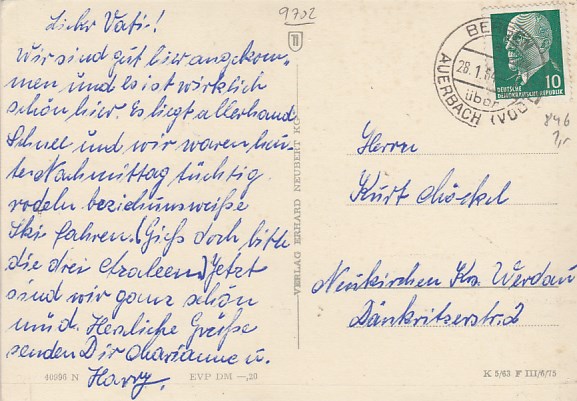 9702
Lieber Vati!
Wir sind gut hier angekom-
men und es ist wirklich
schön hier. Es liegt allerhand
Schnee und wir waren heu-
te Nachmittag tüchtig
rodeln beziehunsweiße
Ski fahren. (Gieß doch bitte
die drei Azaleen.) Jetzt
sind wir ganz schön
müd. Herzliche Grüße
senden Dir Marianne u.
Harry.
40996 N EVP DM —,20
VERLAG ERHARD NEUBERT KG
28.1.64
über
AUERBACH (VOGTL)
10
DEUTSCHE
DEMOKRATISCHE REPUBLIK
846
Herrn
Kurt Möckel
Neukirchen Krs. Werdau
Dänkritzerstr. 2
K 5/63 F III/6/75